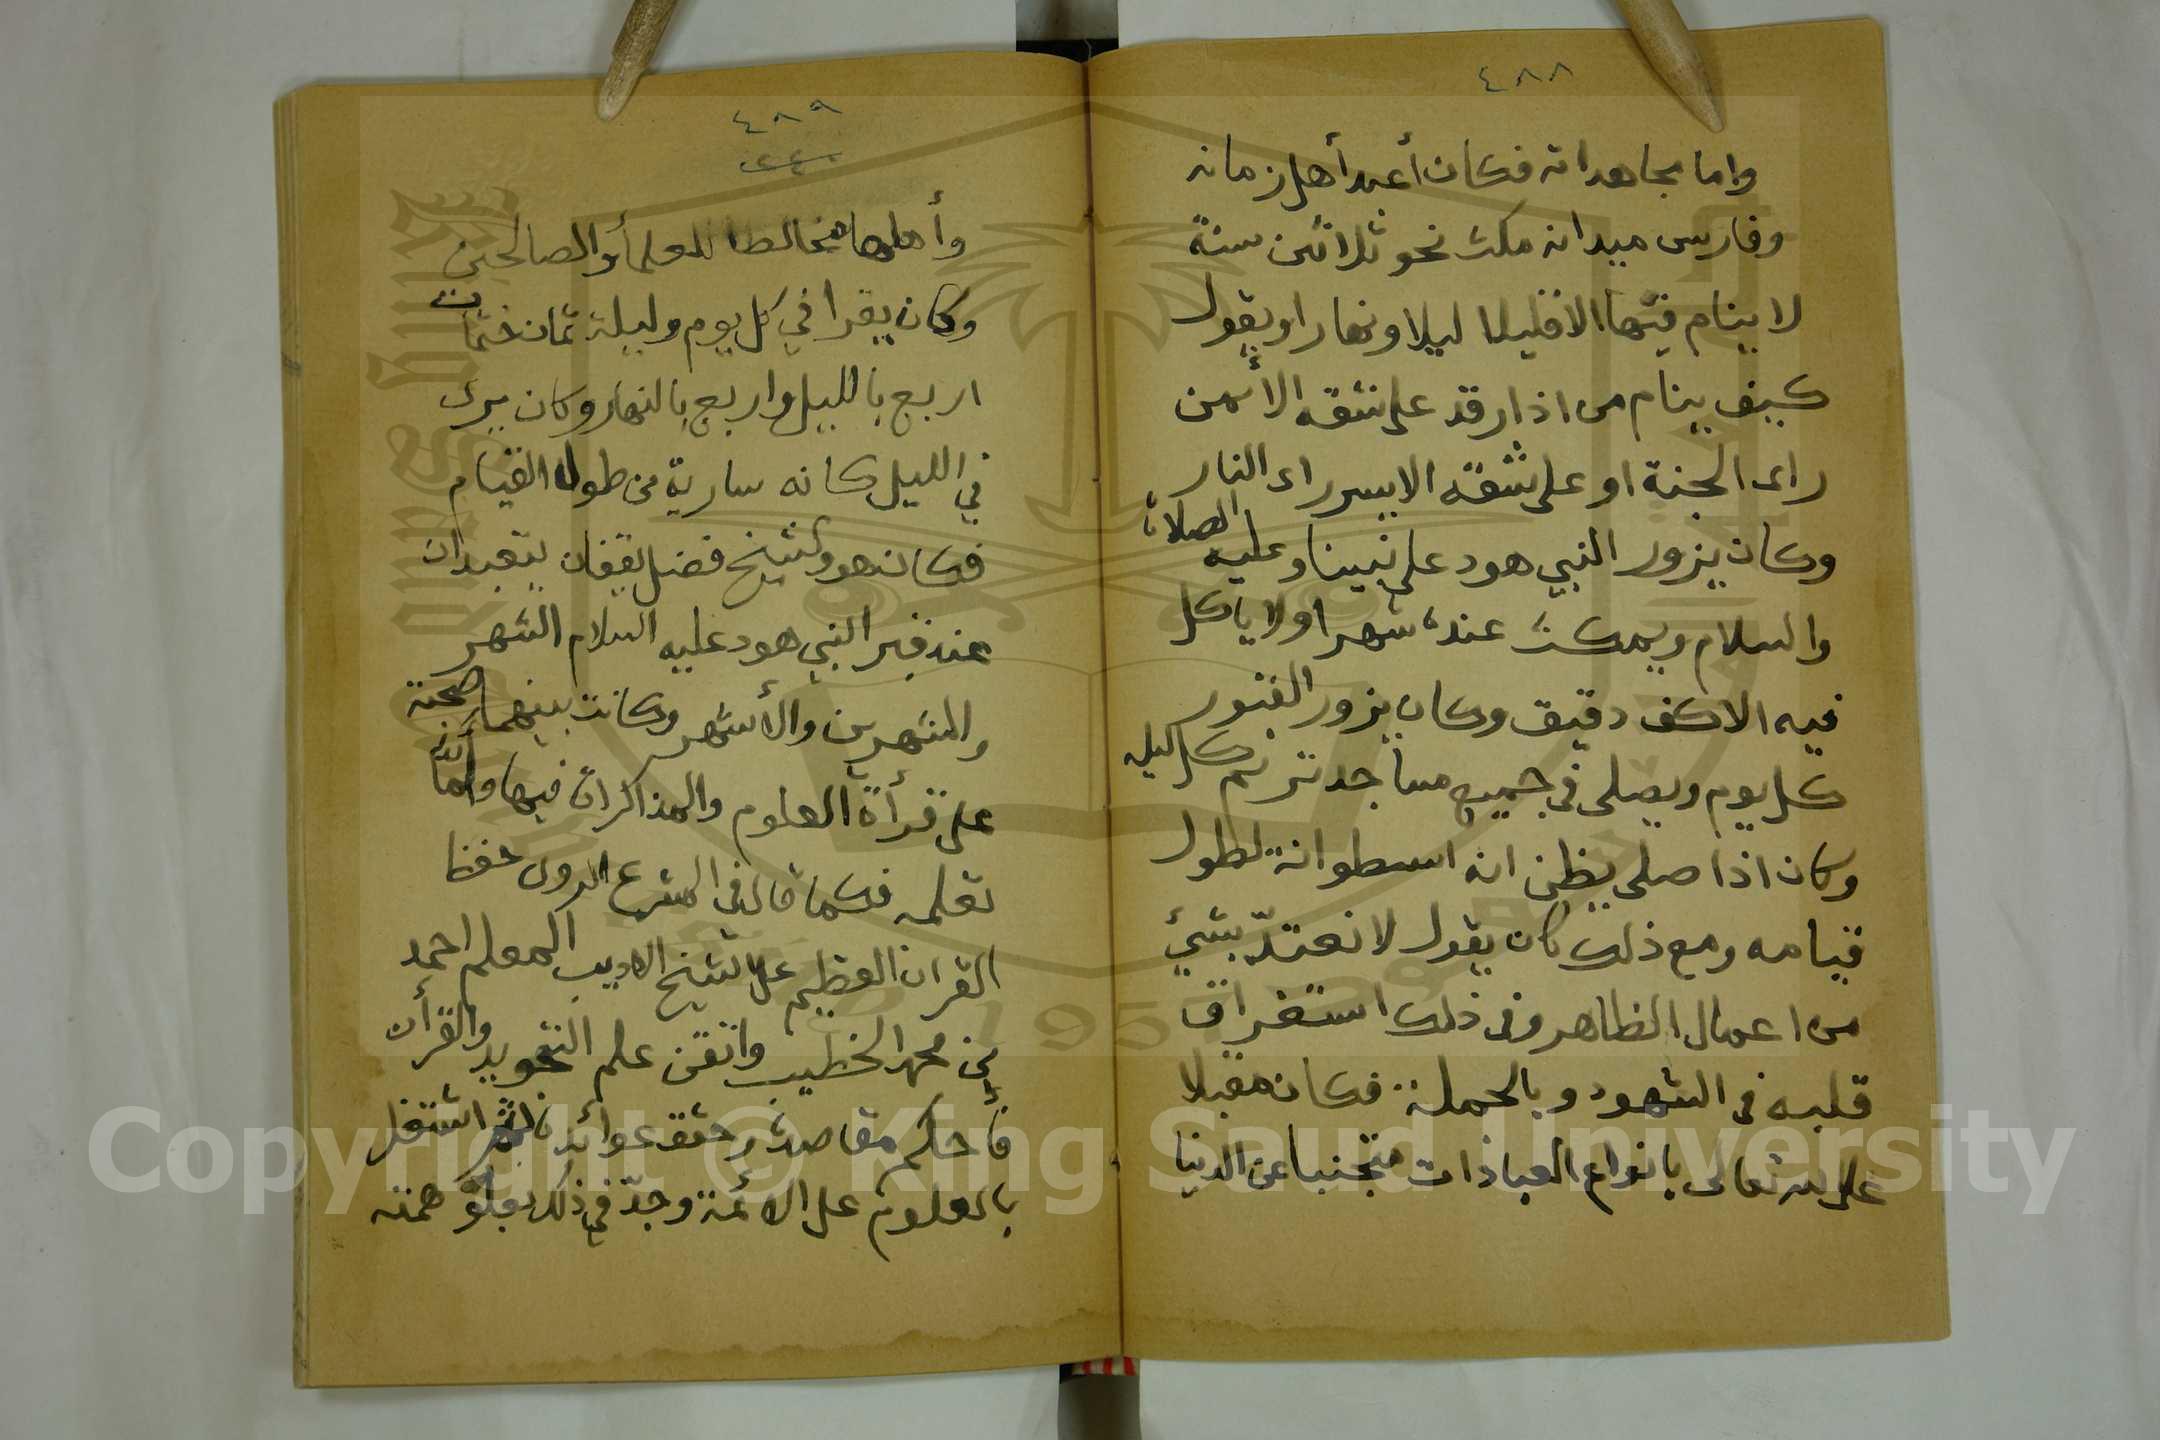 ٤٨٨
واما مجاهداته فكان أعبد أهل زمانه
وفارس ميدانه مكث نحو ثلاثين سنة
لا ينام فيها الا قليلا ليلا ونهارا ويقول
كيف ينام من اذا رقد على شقه الأيمن
راى الجنة او على شقه الايسر راى النار
وكان يزور النبي هود على نبينا وعليه الصلاة
والسلام ويمكث عنده شهرا ولا يأكل
فيه الا كف دقيق وكان يزور القبور
كل يوم ويصلى فى جميع مساجد تريم كل ليله
وكان اذا صلى يظن انه اسطوانة لطول
قيامه ومع ذلك كان يقول لا نعتدّ بشئ
من اعمال الظاهر وفى ذلك استغراق
قلبه فى الشهود وبالجملة فكان مقبلا
على الله تعالى بانواع العبادات متجنبا عن الدنيا
٤٨٩
٢٤٠
وأهلها مخالطا للعلمأ والصالحين
وكان يقرا في كل يوم وليلة ثمان ختمات
اربع بالليل واربع بالنهار وكان يرى
في الليل كانه سارية من طول القيام
فكان هو والشيخ فضل يقفان يتعبدان
عند قبر النبي هود عليه السلام الشهر
والشهرين والأشهر وكانت بينهما صحبة
على قرأة العلوم والمذاكرات فيها وأما
تعلمه فكما قال فى المشرع الروى حفظ
القران العظيم على الشيخ الاديب المعلم احمد
بن محمد الخطيب واتقن علم التجويد والقرأن
فأحكم مقاصده وحقق عوائد ثم اشتغل
بالعلوم على الائمة وجدّ في ذلك بعلوّ همته